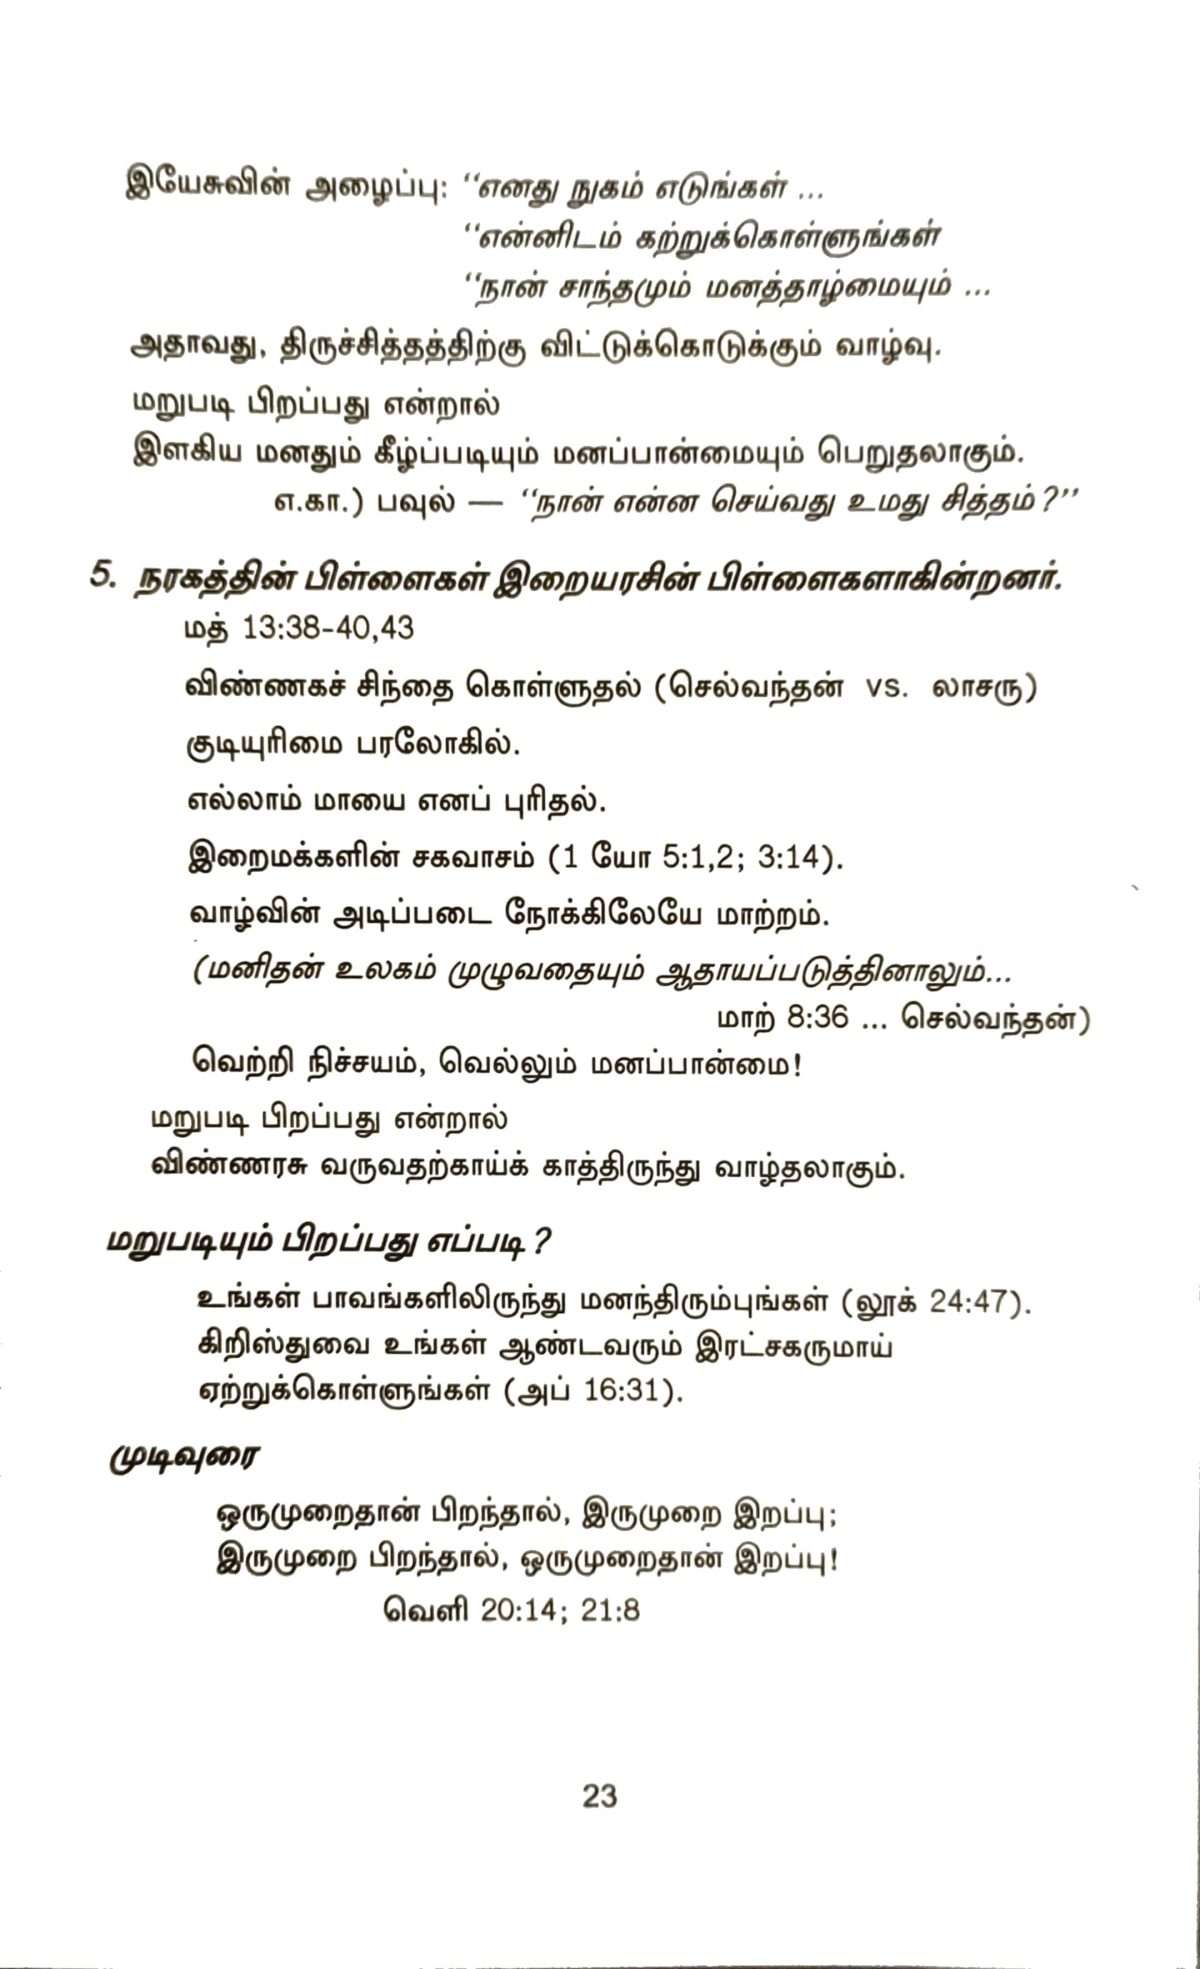 இயேசுவின் அழைப்பு: “எனது நுகம் எடுங்கள் ...
“என்னிடம் கற்றுக்கொள்ளுங்கள்
“நான் சாந்தமும் மனத்தாழ்மையும் ...
அதாவது, திருச்சித்தத்திற்கு விட்டுக்கொடுக்கும் வாழ்வு.
மறுபடி பிறப்பது என்றால்
இளகிய மனதும் கீழ்ப்படியும் மனப்பான்மையும் பெறுதலாகும்.
எ.கா.) பவுல் — “நான் என்ன செய்வது உமது சித்தம்?”
5. நரகத்தின் பிள்ளைகள் இறையரசின் பிள்ளைகளாகின்றனர்.
மத் 13:38-40,43
விண்ணகச் சிந்தை கொள்ளுதல் (செல்வந்தன் vs. லாசரு)
குடியுரிமை பரலோகில்.
எல்லாம் மாயை எனப் புரிதல்.
இறைமக்களின் சகவாசம் (1 யோ 5:1,2; 3:14).
வாழ்வின் அடிப்படை நோக்கிலேயே மாற்றம்.
(மனிதன் உலகம் முழுவதையும் ஆதாயப்படுத்தினாலும்...
மாற் 8:36 ... செல்வந்தன்)
வெற்றி நிச்சயம், வெல்லும் மனப்பான்மை!
மறுபடி பிறப்பது என்றால்
விண்ணரசு வருவதற்காய்க் காத்திருந்து வாழ்தலாகும்.
மறுபடியும் பிறப்பது எப்படி?
உங்கள் பாவங்களிலிருந்து மனந்திரும்புங்கள் (லூக் 24:47).
கிறிஸ்துவை உங்கள் ஆண்டவரும் இரட்சகருமாய்
ஏற்றுக்கொள்ளுங்கள் (அப் 16:31).
முடிவுரை
ஒருமுறைதான் பிறந்தால், இருமுறை இறப்பு;
இருமுறை பிறந்தால், ஒருமுறைதான் இறப்பு!
வெளி 20:14; 21:8
23